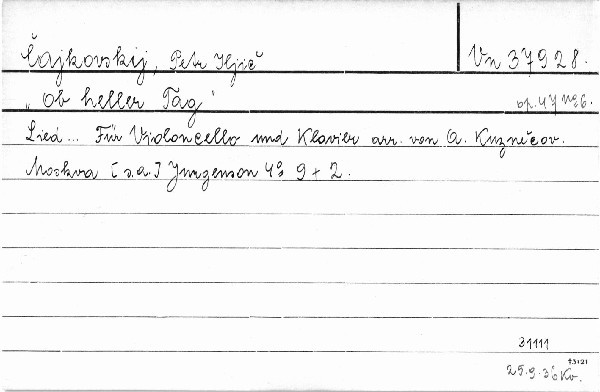 Čajkovskij, Petr Iljič
Vn 37928.
„Ob heller Tag"
op. 47 No 6.
Lied... Für Violoncello und Klavier arr. von A. Kuznečov.
Moskva [s.a.] Jurgenson 4° 9 + 2.
31111
†3121
25.9.36 Kv.